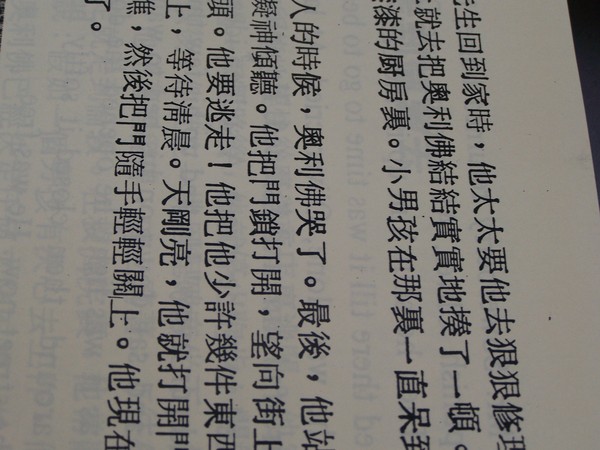 生回到家時，他太太要他去狠狠修理
就去把奧利佛結結實實地揍了一頓。
漆的厨房裏。小男孩在那裏一直呆到
人的時候，奧利佛哭了。最後，他站
凝神傾聽。他把門鎖打開，望向街上
頭。他要逃走！他把他少許幾件東西
上，等待清晨。天剛亮，他就打開門
瞧，然後把門隨手輕輕關上。他現在
了。